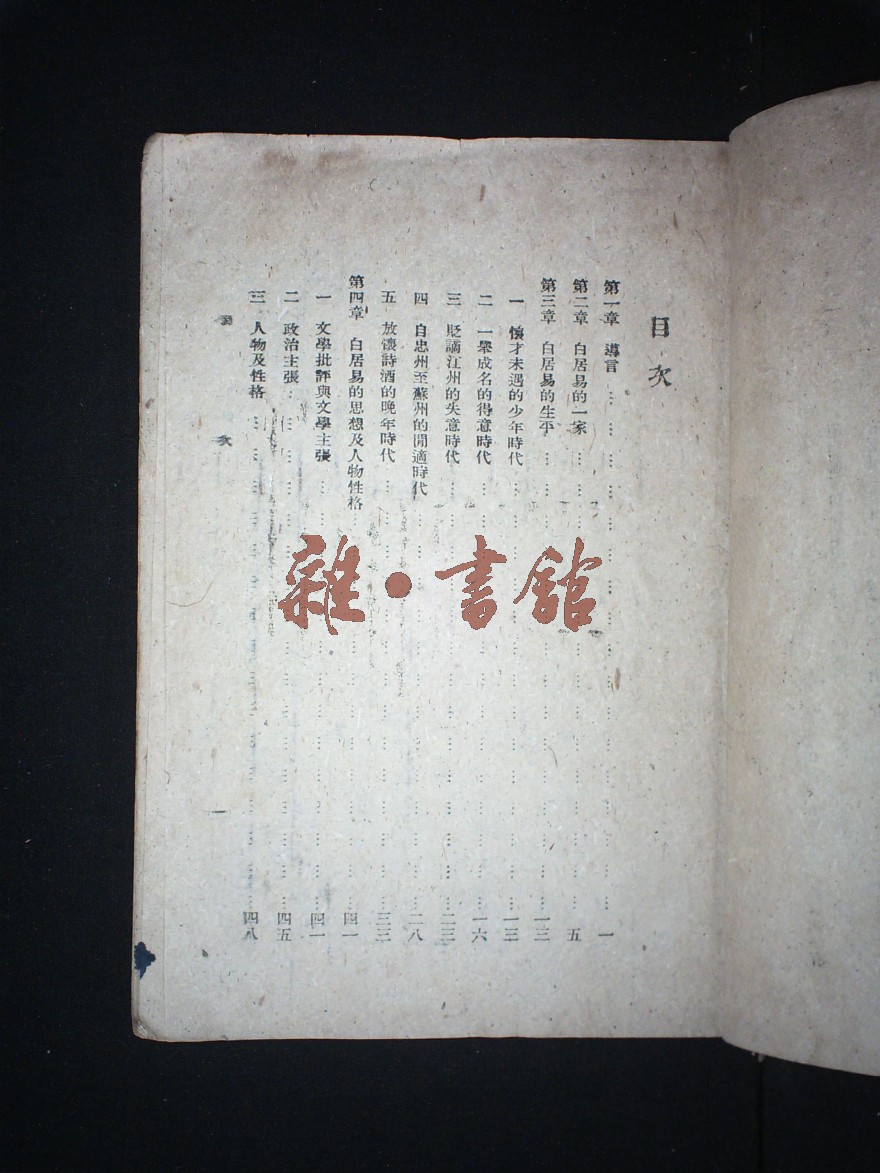 目次
第一章　導言…………一
第二章　白居易的一家…………五
第三章　白居易的生平…………一三
一　懷才未遇的少年時代…………一三
二　一舉成名的得意時代…………一六
三　貶謫江州的失意時代…………二三
四　自忠州至蘇州的閒適時代…………二八
五　放懷詩酒的晚年時代…………三三
第四章　白居易的思想及人物性格…………四一
一　文學批評與文學主張…………四一
二　政治主張…………四五
三　人物及性格…………四八
目次
一
雜·書館